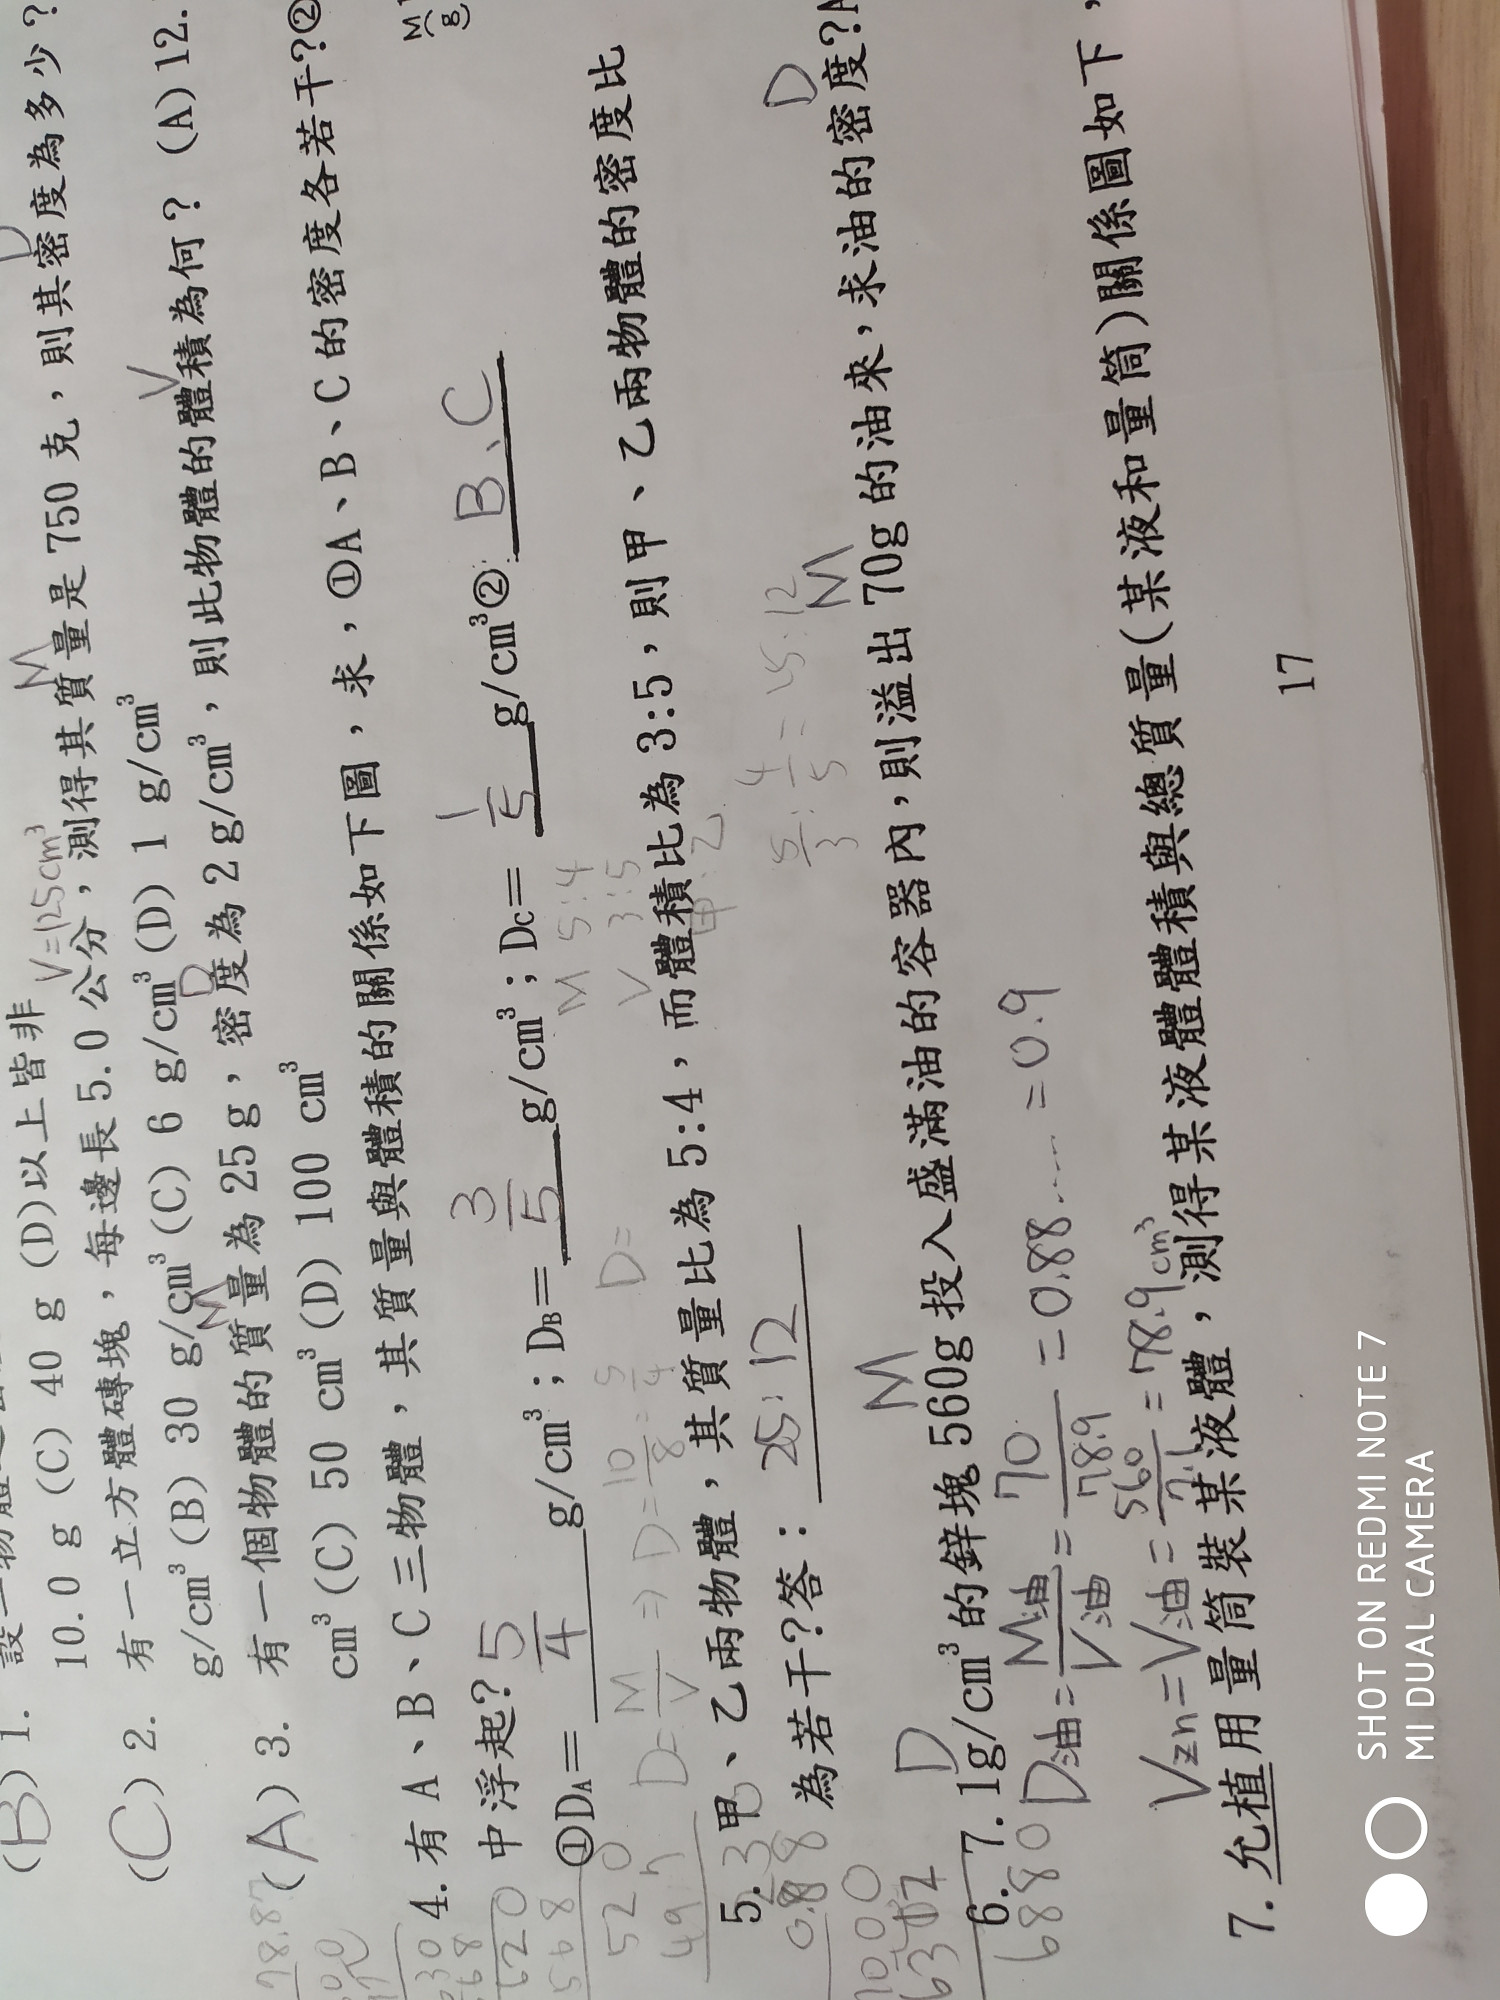 10.0 g (C) 40 g (D)以上皆非
V=125cm³
M
(C) 2. 有一立方體磚塊，每邊長5.0公分，測得其質量是750克，則其密度為多少？
g/cm³(B) 30 g/cm³(C) 6 g/cm³(D) 1 g/cm³
M D V
(A) 3. 有一個物體的質量為25g，密度為2g/cm³，則此物體的體積為何？ (A)12.
cm³(C) 50 cm³(D) 100 cm³
4. 有A、B、C三物體，其質量與體積的關係如下圖，求，①A、B、C的密度各若干?②
中浮起?
①DA= 5/4 g/cm³；DB= 3/5 g/cm³；DC= 1/5 g/cm³②: B、C
D=M/V ⇒ D=10/8=5/4 D=
M 5:4
V 3:5
甲:乙
5. 甲、乙兩物體，其質量比為5:4，而體積比為3:5，則甲、乙兩物體的密度比
為若干?答： 25:12
5/3:4/5=25:12
D M M D
6. 7.1g/cm³的鋅塊560g投入盛滿油的容器內，則溢出70g的油來，求油的密度?
D油=M油/V油=70/78.9=0.88....=0.9
Vzn=V油=560/7.1=78.9cm³
7. 允植用量筒裝某液體，測得某液體體積與總質量(某液和量筒)關係圖如下，
17
SHOT ON REDMI NOTE 7
MI DUAL CAMERA